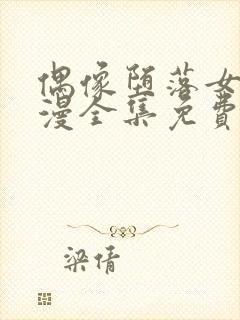 偶像堕落女
漫全集免费
梁倩